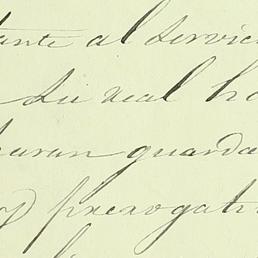 tante al servici
su real ho
guarda
prerogati